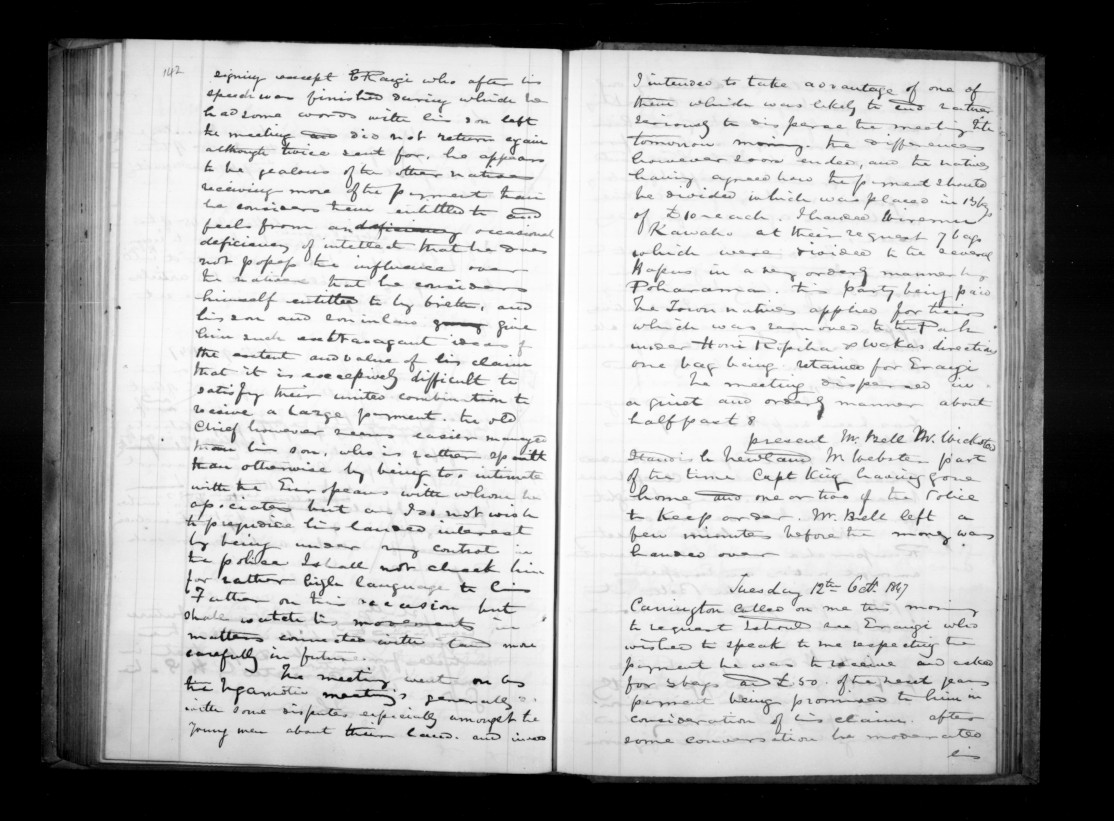 142
signing except E Rangi who after his
speech was finished during which he
had some words with his son left
the meeting and did not return again
although twice sent for. he appears
to be jealous of the other natives
receiving more of the payment than
he considers them entitled to and
feels from an deficiency occasional
deficiency of intellect that he does
not possess the influence over
the natives that he considers
himself entitled to by birth, and
his son and son in law give
him such extravagant ideas of
the extent and value of his claim
that it is excessively difficult to
satisfy their united combination to
receive a large payment. the old
Chief however seems easier managed
than his son, who is rather spoilt
than otherwise by being too intimate
with the Europeans with whom he
associates but as I do not wish
to prejudice his landed interest
by being under my control in
the police I shall not check him
for rather high language to his
Father on this occasion but
shall watch his movements in
matters connected with land more
carefully in future
The meeting went on as
the Ngamotu meetings generally
with some disputes especially amongst the
young men about their land. and indeed
I intended to take advantage of one of
them which was likely to end rather
seriously to disperse the meeting till
tomorrow morng. the differences
however soon ended, and the natives
having agreed how the payment should
be divided which was placed in bags
of £10 each. I handed
Kawaho at their request 7 bags
which were divided to the several
Hapus in a very orderly manner by
Poharama. His party being paid
the Town natives applied for theirs
which was removed to the Pah
under Honi Ropiha & Wakas direction
one bag being retained for Erangi
The meeting dispersed in
a quiet and orderly manner about
half past 8
present Mr. Bell Mr. Wicksteed
Standish Newland Mr Webster part
of the time Capt King having gone
home and one or two of the Police
to keep order. Mr. Bell left a
few minutes before the money was
handed over
Tuesday 12th Octr. 1847
Carrington called on me this morning
to request I should see Erangi who
wished to speak to me respecting the
payment he was to receive and asked
for 3 bags and £50. of the next years
payment being promised to him in
consideration of his claim. after
some conversation he moderated
his